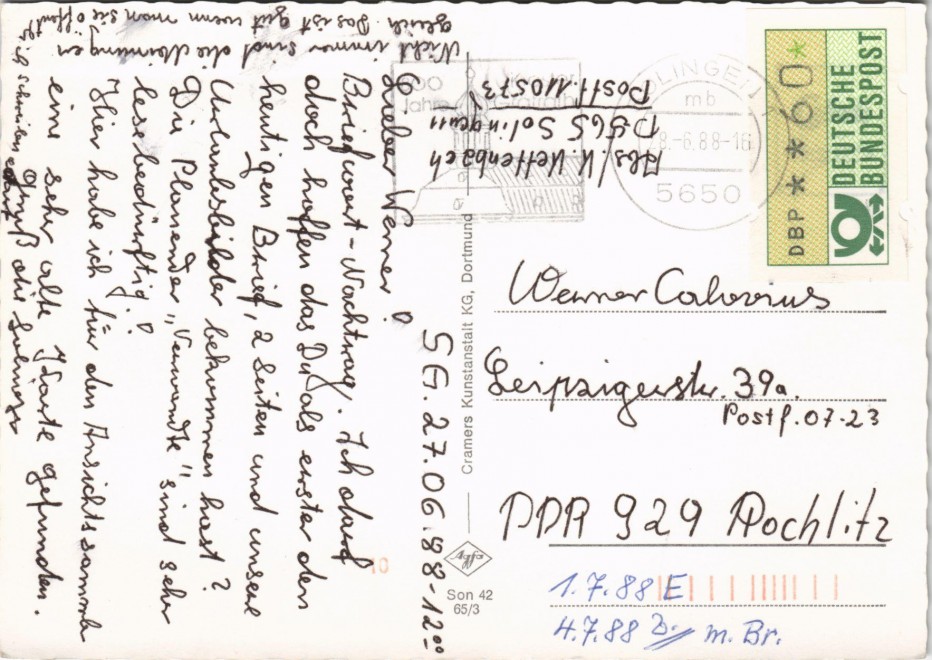 SG. 27.06.88-12⁰⁰
Lieber Werner!
Briefwort-Nachtrag. Ich darf
doch hoffen das Du als erster den
heutigen Brief, 2 Seiten und unsere
Urlaubsbilder bekommen hast?
Die Plauender "Verwandte" sind sehr
lesebedürftig!
Hier habe ich für den Ansichtssammler
eine sehr alte Karte gefunden.
Gruß die Solinger
Nicht immer sind die Meinungen
gleich. Das ist gut wenn man sie
schreiben darf
Abs. W. Kettenbach
D 565 Solingen 11
Postf. 110573
Jahre
SOLINGEN 1
mb
28.-6.88-16
5650
DBP ***60*
DEUTSCHE
BUNDESPOST
Werner
Leipzigerstr. 39a
Postf. 07-23
DDR 929 Rochlitz
1.7.88 E
4.7.88 B. m. Br.
Cramers Kunstanstalt KG, Dortmund
Agfa
Son 42
65/3
10